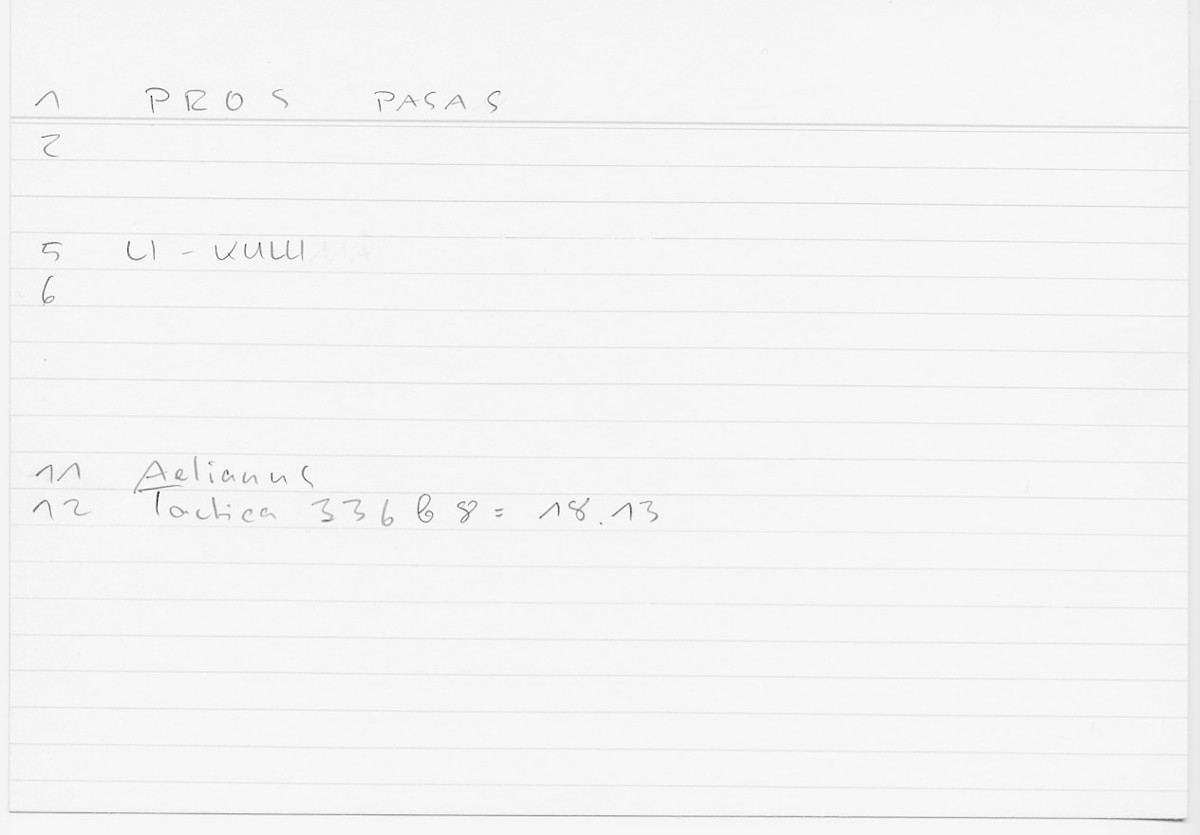 1 PROS PASAS
2
5 LI - XULLI
6
11 Aelianus
12 Tactica 336 b 8 = 18.13